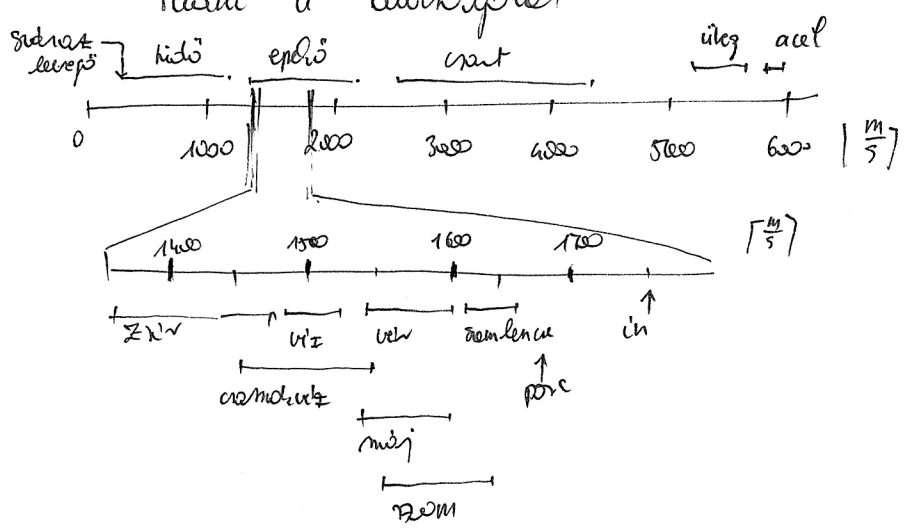 száraz levegő
tüdő
epekő
csont
üveg
acél
0 1000 2000 3000 4000 5000 6000 [m/s]
1400 1500 1600 1700 [m/s]
zsír
víz
vér
szemlencse
ín
csarnokvíz
porc
máj
izom